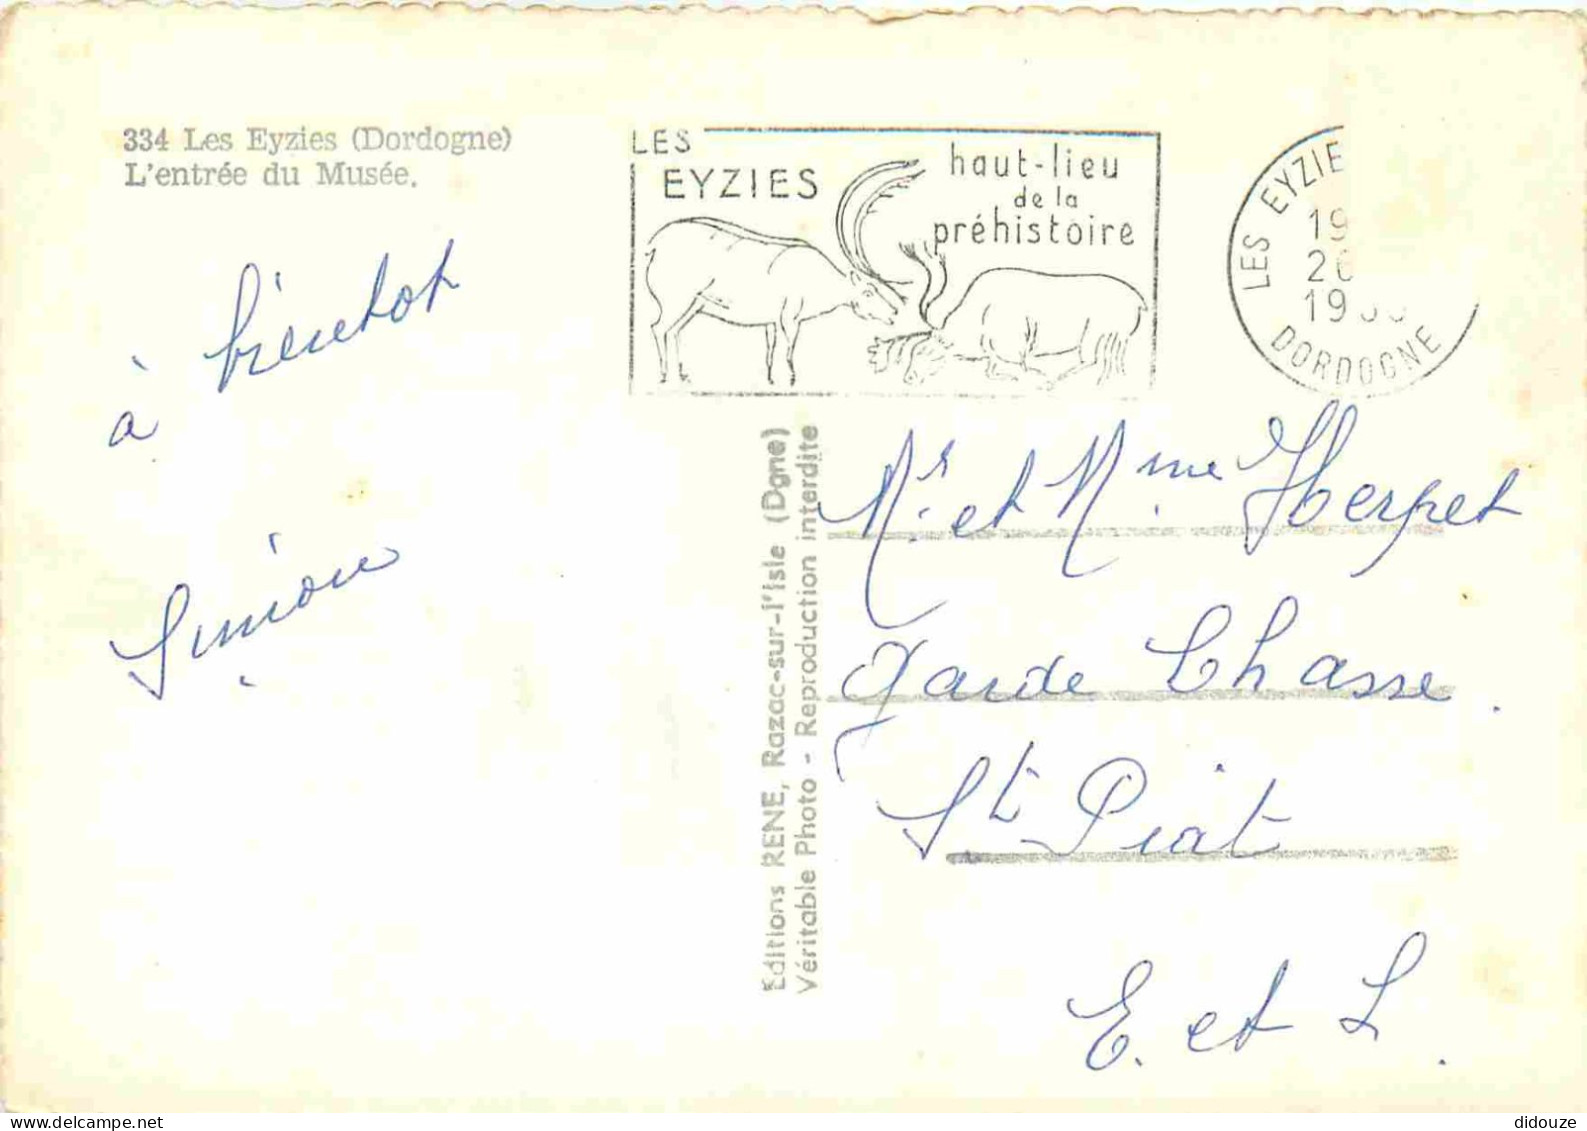 334 Les Eyzies (Dordogne)
L'entrée du Musée.
à bientot
Simon
LES
EYZIES
haut-lieu
de la
préhistoire
LES EYZIE
19
1960
DORDOGNE
Editions RENE, Razac-sur-l'Isle (Dgne)
Véritable Photo - Reproduction interdite
Mr. et Mme Herpet
Garde Chasse.
St Piat
E. et L.
didouze